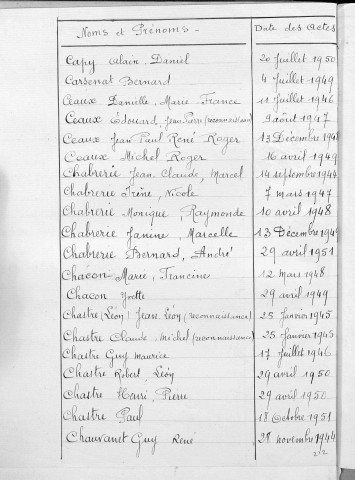 Noms et Prénoms - Date des Actes
Capy Alain Daniel 20 Juillet 1950
Carsenat Bernard 4 Juillet 1949
Ceaux Danielle, Marie France 11 Juillet 1946
Ceaux Edouard, Jean Pierre (reconnaissance) 9 août 1947
Ceaux Jean Paul René Roger 13 Décembre 1948
Ceaux Michel Roger 16 avril 1949
Chabrerie Jean Claude, Marcel 14 septembre 1944
Chabrerie Irène, Nicole 7 mars 1947
Chabrerie Monique Raymonde 10 avril 1948
Chabrerie Janine, Marcelle 13 Décembre 1949
Chabrerie Bernard, André 29 avril 1951
Chacon Marie, Francine 12 mars 1948
Chacon Yvette 29 avril 1949
Chastre (Léon) Jean Léon (reconnaissance) 25 Janvier 1945
Chastre Claude, Michel (reconnaissance) 25 Janvier 1945
Chastre Guy maurice 17 Juillet 1946
Chastre Robert, Léon 29 avril 1950
Chastre Henri, Pierre 29 avril 1950
Chastre Paul 18 Octobre 1951
Chauvanet Guy René 28 novembre 1944